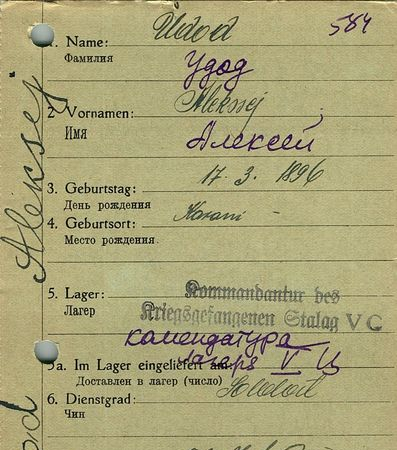 Udod 584
1. Name:
Фамилия Удод
Aleksej
2. Vornamen:
Имя Алексей
3. Geburtstag: 17. 3. 1896
День рождения
4. Geburtsort: Karani
Место рождения
5. Lager: Kommandantur des
Лагер Kriegsgefangenen Stalag V C
комендатура
лагеря V Ц
5a. Im Lager eingeliefert am:
Доставлен в лагер (число) Soldat
6. Dienstgrad:
Чин
Aleksej